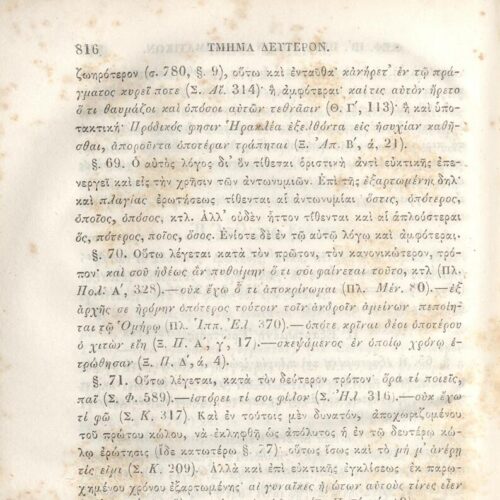 816 ΤΜΗΜΑ ΔΕΥΤΕΡΟΝ.
ζωηρότερον (σ. 780, §. 9), οὕτω καὶ ἐνταῦθα· κἀνήρετ' ἐν τῷ πρά-
γματος κυρεῖ ποτε (Σ. Αἴ. 314)· ἢ ἀμφότεραι· καί τις αὐτὸν ἤρετο
ὅ τι θαυμάζοι καὶ ὁπόσοι αὐτῶν τεθνᾶσιν (Θ. Γ', 113)· ἢ καὶ ὑπο-
τακτική· Πρόδικός φησιν Ἡρακλέα ἐξελθόντα εἰς ἡσυχίαν καθῆ-
σθαι, ἀποροῦντα ὁποτέραν τράπηται (Ξ. Ἀπ. Β', ά, 21).
§. 69. Ὁ αὐτὸς λόγος δι' ὃν τίθεται ὁριστικὴ ἀντὶ εὐκτικῆς ἐπε-
νεργεῖ καὶ εἰς τὴν χρῆσιν τῶν ἀντωνυμιῶν. Ἐπὶ τῆς ἐξαρτωμένης δηλ·
καὶ πλαγίας ἐρωτήσεως τίθενται αἱ ἀντωνυμίαι ὅστις, ὁπότερος,
ὁποῖος, ὁπόσος, κτλ. Ἀλλ' οὐδὲν ἧττον τίθενται καὶ αἱ ἁπλούστεραι
ὅς, πότερος, ποῖος, ὅσος. Ἐνίοτε δὲ ἐν τῷ αὐτῷ λόγῳ καὶ ἀμφότεραι.
§. 70. Οὕτω λέγεται κατὰ τὸν πρῶτον, τὸν κανονικώτερον, τρό-
πον· καὶ σοῦ ἡδέως ἂν πυθοίμην ὅ τι σοι φαίνεται τοῦτο, κτλ (Πλ.
Πολ. Α', 328).—οὐκ ἔχω ὅ τι ἀποκρίνωμαι (Πλ. Μέν. 80).—ἐξ
ἀρχῆς σε ἠρόμην ὁπότερος τούτοιν τοῖν ἀνδροῖν ἀμείνων πεποίη-
ται τῷ Ὁμήρῳ (Πλ. Ἱππ. Ἐλ. 370).—ὁπότε κρῖναι δέοι ὁποτέρου
ὁ χιτὼν εἴη (Ξ. Π. Α', γ', 17).—σκεψόμενος ἐν ὁποίῳ χρόνῳ ἐ-
τρώθησαν (Ξ. Π. Δ', ά, 4).
§. 71. Οὕτω λέγεται, κατὰ τὸν δεύτερον τρόπον· ὅρα τί ποιεῖς,
παῖ (Σ. Φ. 589).—ἱστόρει τί σοι φίλον (Σ. Ἠλ. 316).—οὐκ ἔχω
τί φῶ (Σ. Κ. 317). Καὶ ἐν τούτοις μὲν δυνατόν, ἀποχωριζομένου
τοῦ πρώτου κώλου, νὰ ἐκληφθῇ ὡς ἀπόλυτος ἡ ἐν τῷ δευτέρῳ κώ-
λῳ ἐρώτησις (ἴδε κατωτέρω §. 77)· οὕτως ἴσως καὶ τὸ μή μ' ἀνέρῃ
τίς εἰμι (Σ. Κ. 209). Ἀλλὰ καὶ ἐπὶ εὐκτικῆς ἐγκλίσεως ἐκ παρω-
χημένου χρόνου ἐξαρτωμένης· αἱ γυναῖκες ἠρώτων αὐτοὺς τίνες εἶεν